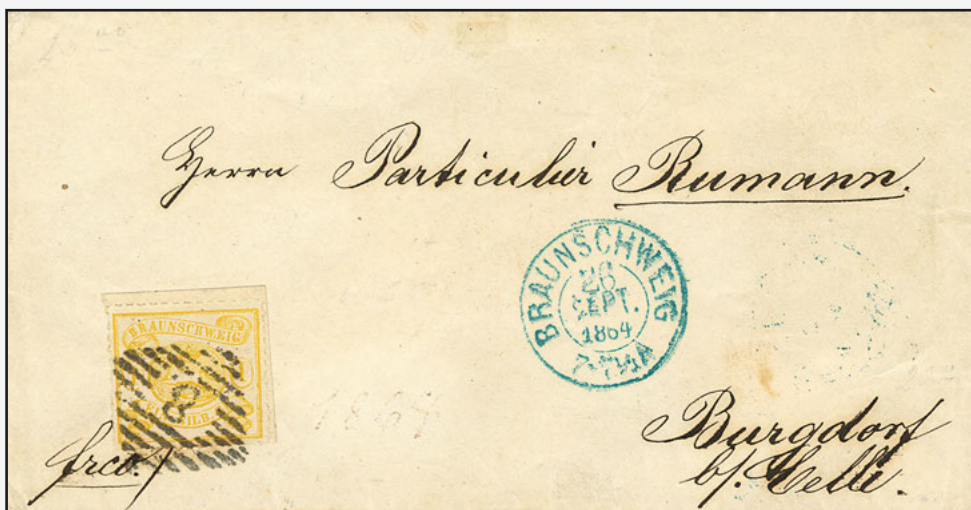 Herrn Particulier Rumann.
BRAUNSCHWEIG
26
SEPT.
1864
7-7½A
BRAUNSCHWEIG
8
frco.
1864
Burgdorf
b/. Celle.